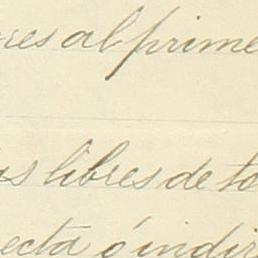 res al prime
us libres de to
ecta ó indir